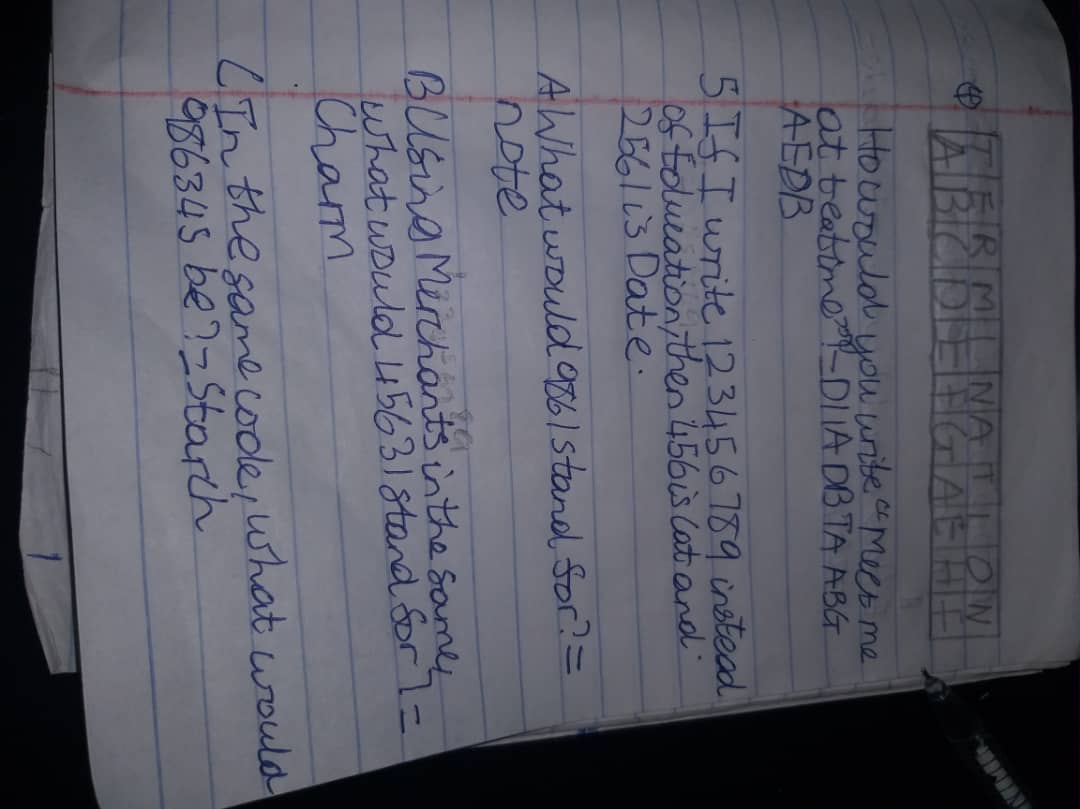 ④ T E R M I N A T I O N
A B C D E F G A E H F
How would you write "Meet me
at teatime"?_DIADBTAABG
AEDB
5 If I write 123456789 instead
of Education, then 456 is Cat and
2561 is Date.
A What would 9861 stand for? =
note
B Using Merchants in the same,
what would 45631 stand for? =
Charm
C In the same code, what would
986345 be? = Starch
1